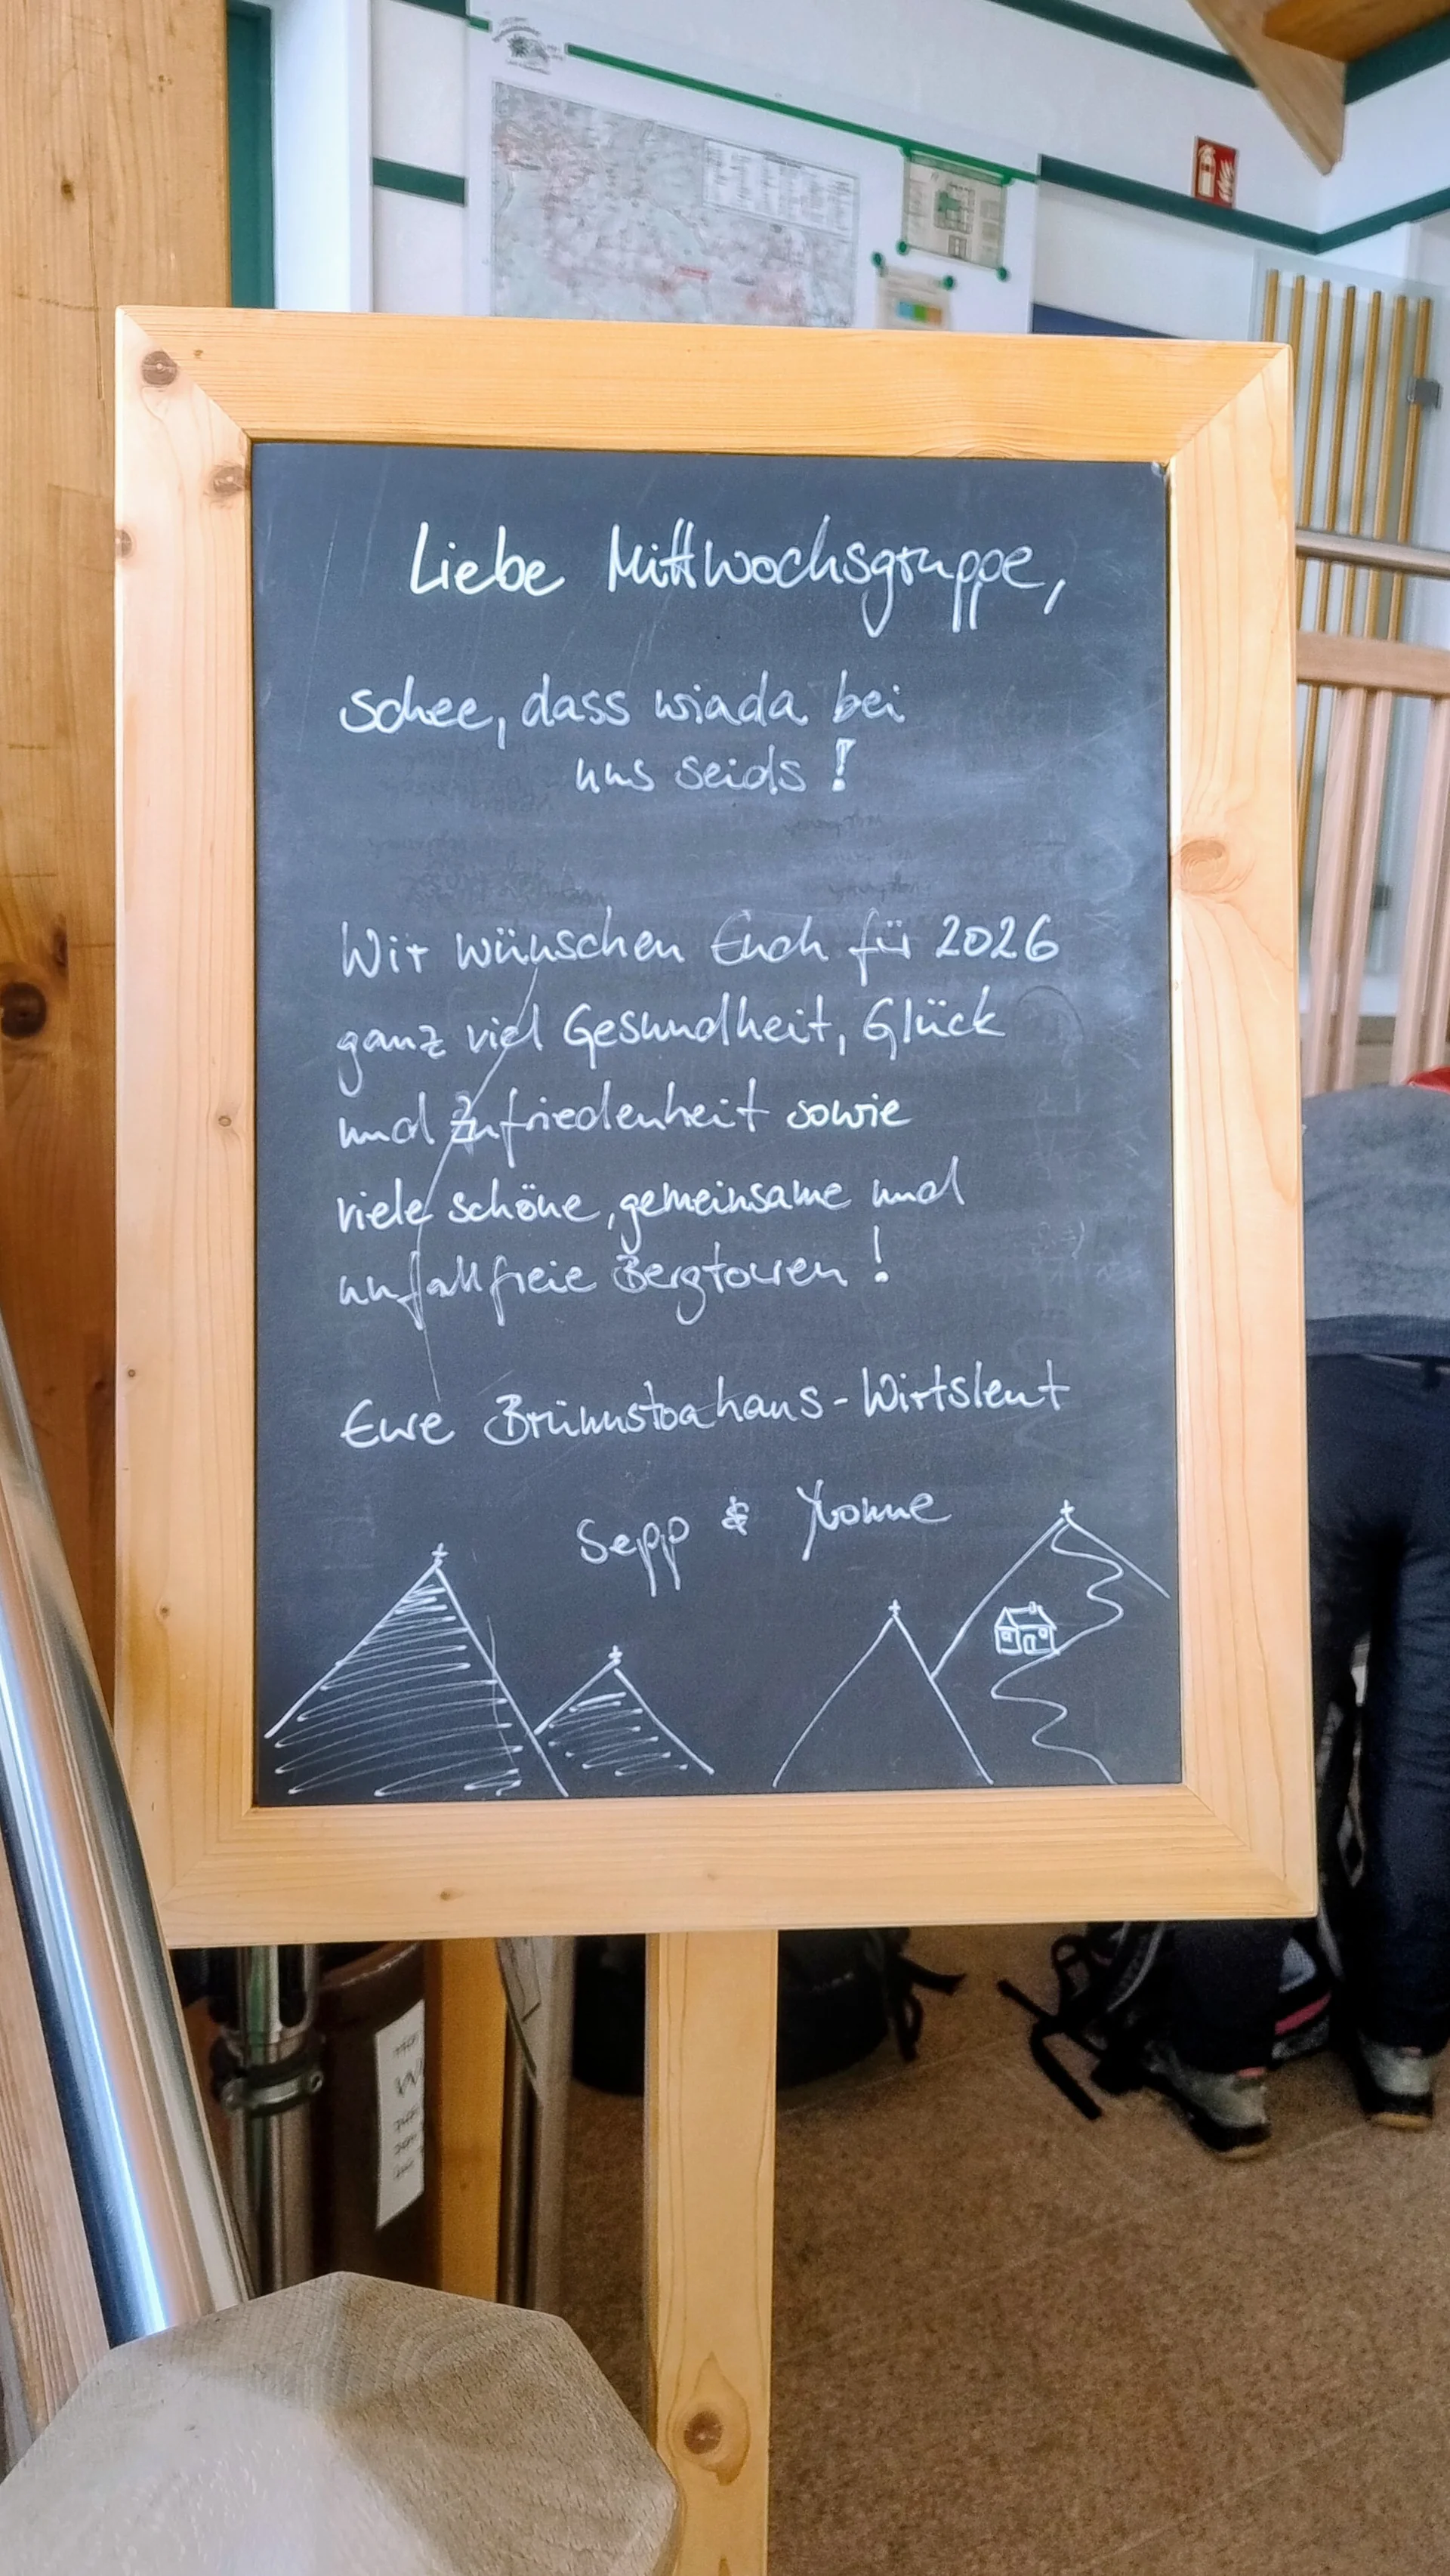 Liebe Mittwochsgruppe,
schee, dass wiada bei
uns seids!
Wir wünschen Euch für 2026
ganz viel Gesundheit, Glück
und Zufriedenheit sowie
viele schöne, gemeinsame und
unfallfreie Bergtouren!
Eure Brünnstoahaus-Wirtsleut
Sepp & Yvonne